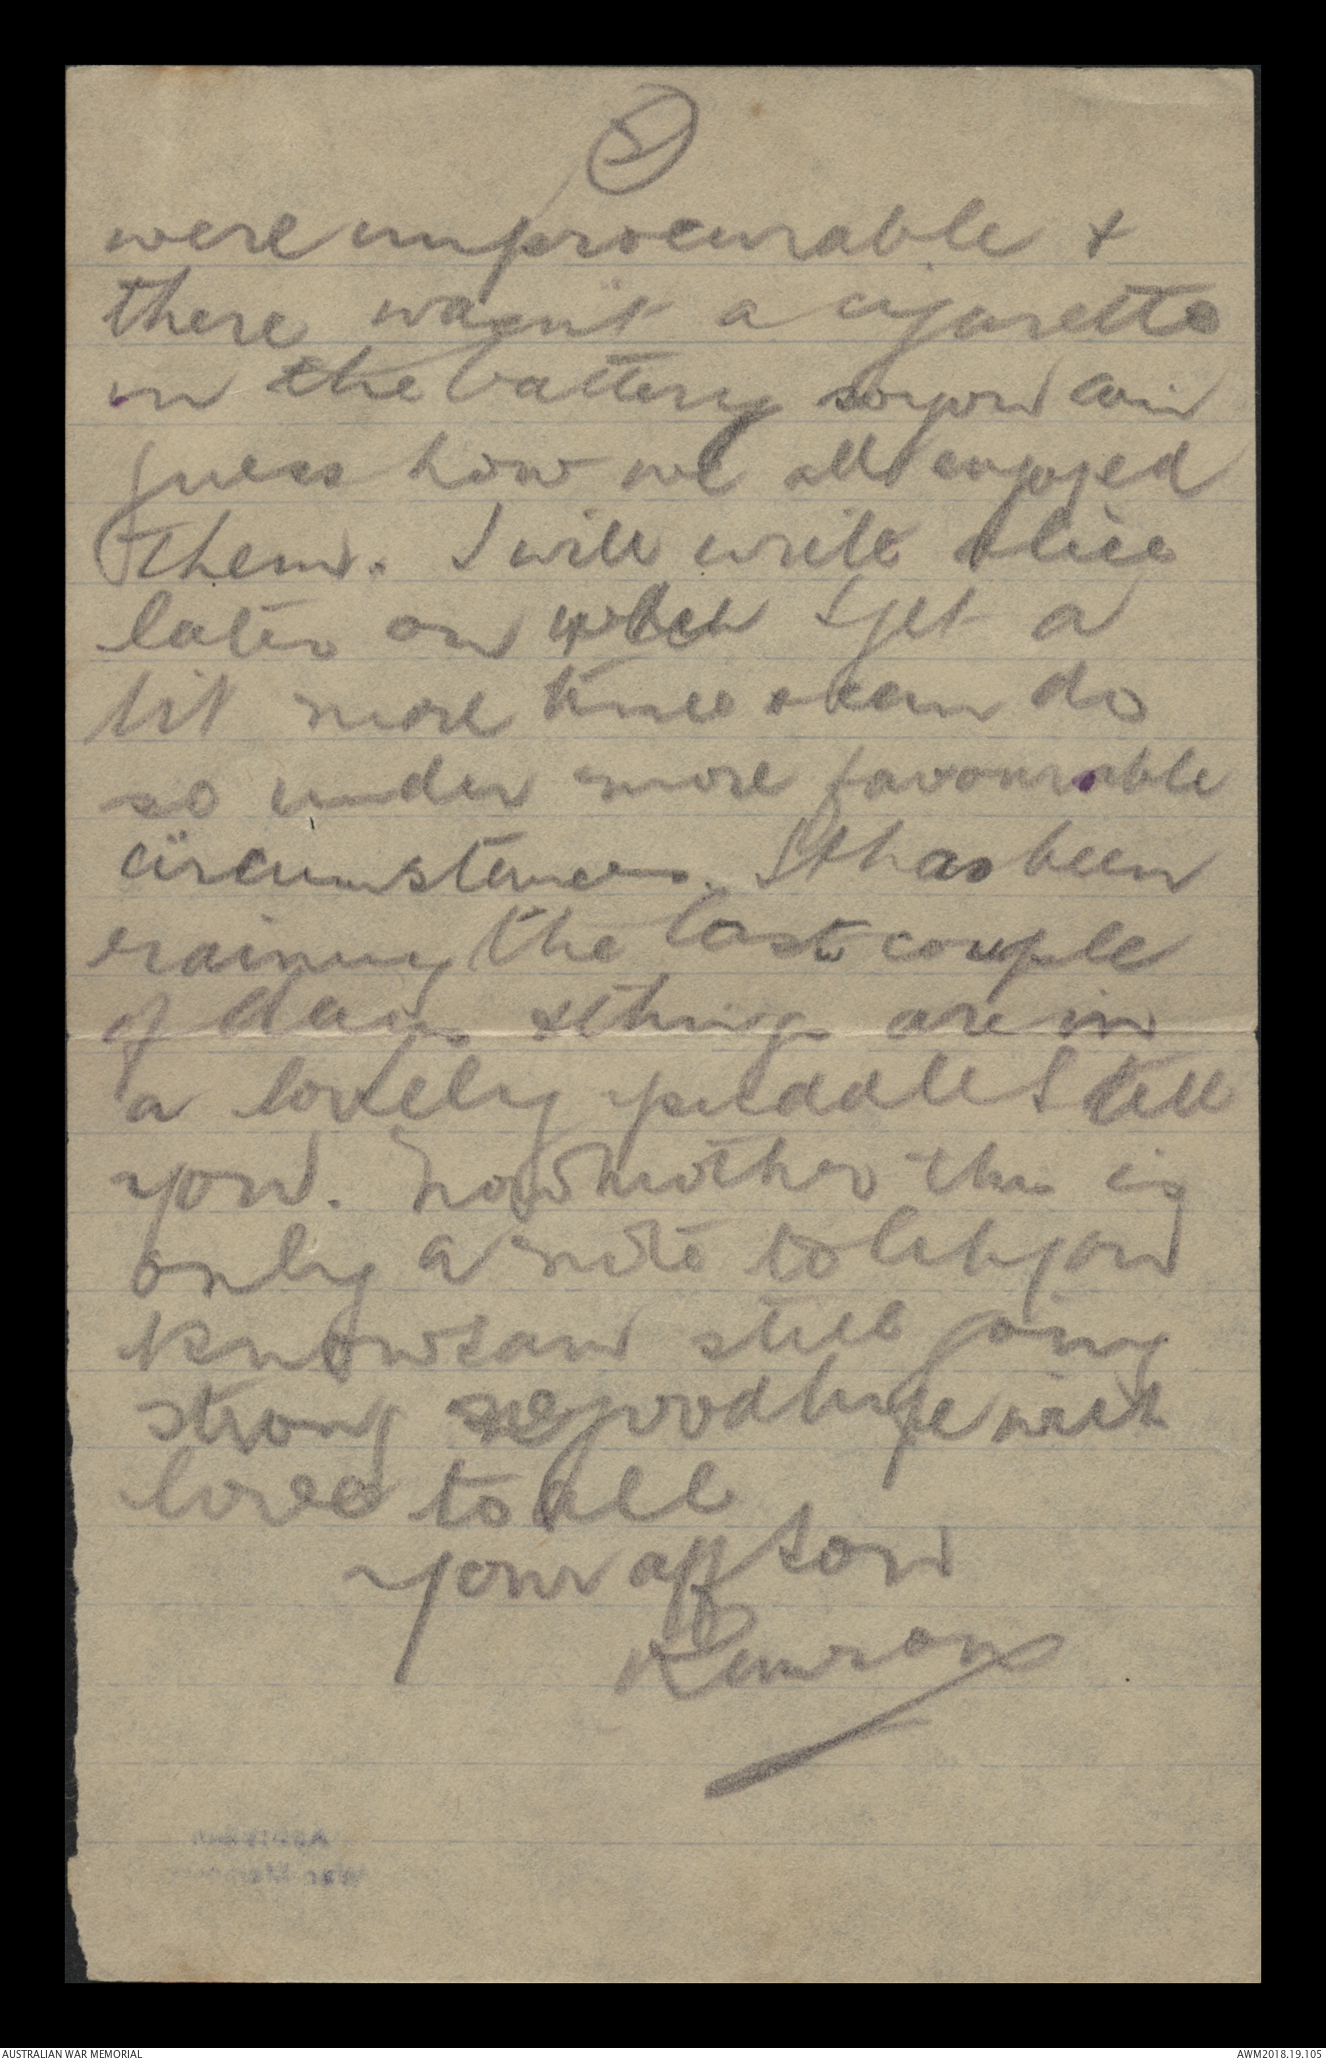 5
were unprocurable &
there wasn't a cigarette
in the battery so you can
guess how we all enjoyed
them. I will write Alice
later on when I get a
bit more time & can do
so under more favourable
circumstances. It has been
raining the last couple
of days & things are in
a lovely puddle I tell
you. Now Mother this is
only a note to let you
know I am still going
strong so goodbye with
love to all
Your aff Son
Australian
War Memorial
AUSTRALIAN WAR MEMORIAL
AWM2018.19.105